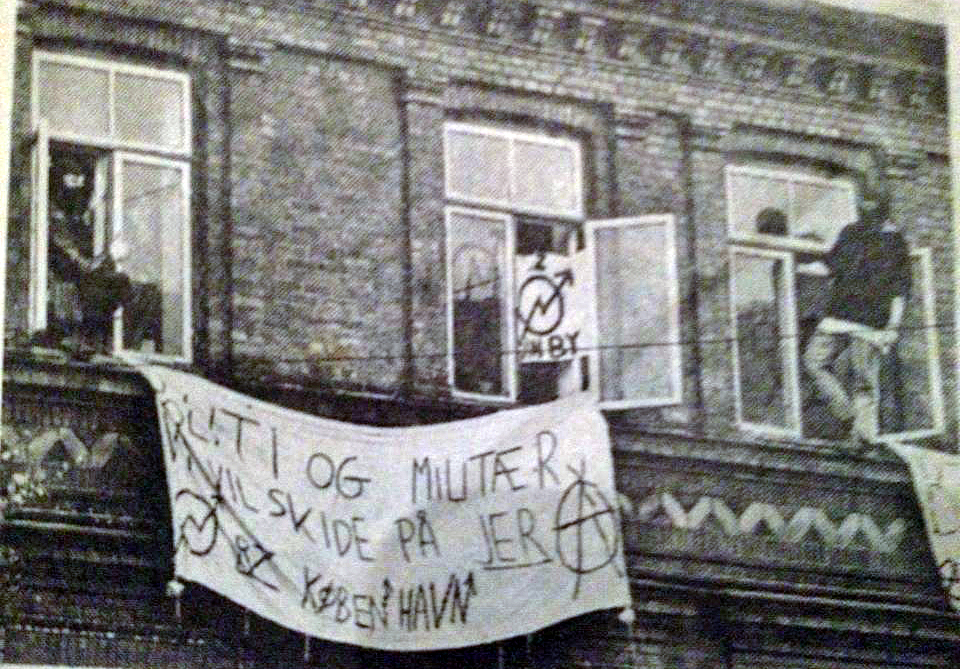 POLITI OG MILITÆR
VI VIL SKIDE PÅ JER
BZ KØBENHAVN